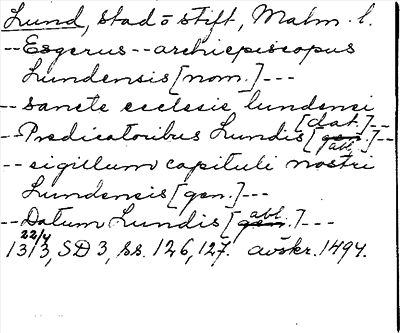 Lund, stad o stift, Malm. l.
-- Esgerus -- archiepiscopus
Lundensis [nom.] ---
-- sancte ecclesie lundensi [dat.] --
-- Predicatoribus Lundis [gen. abl.] --
-- sigillum capituli nostri
Lundensis [gen.] ---
-- Datum Lundis [gen. abl.] ---
22/4 1313, SD 3, ss. 126, 127. avskr. 1494.